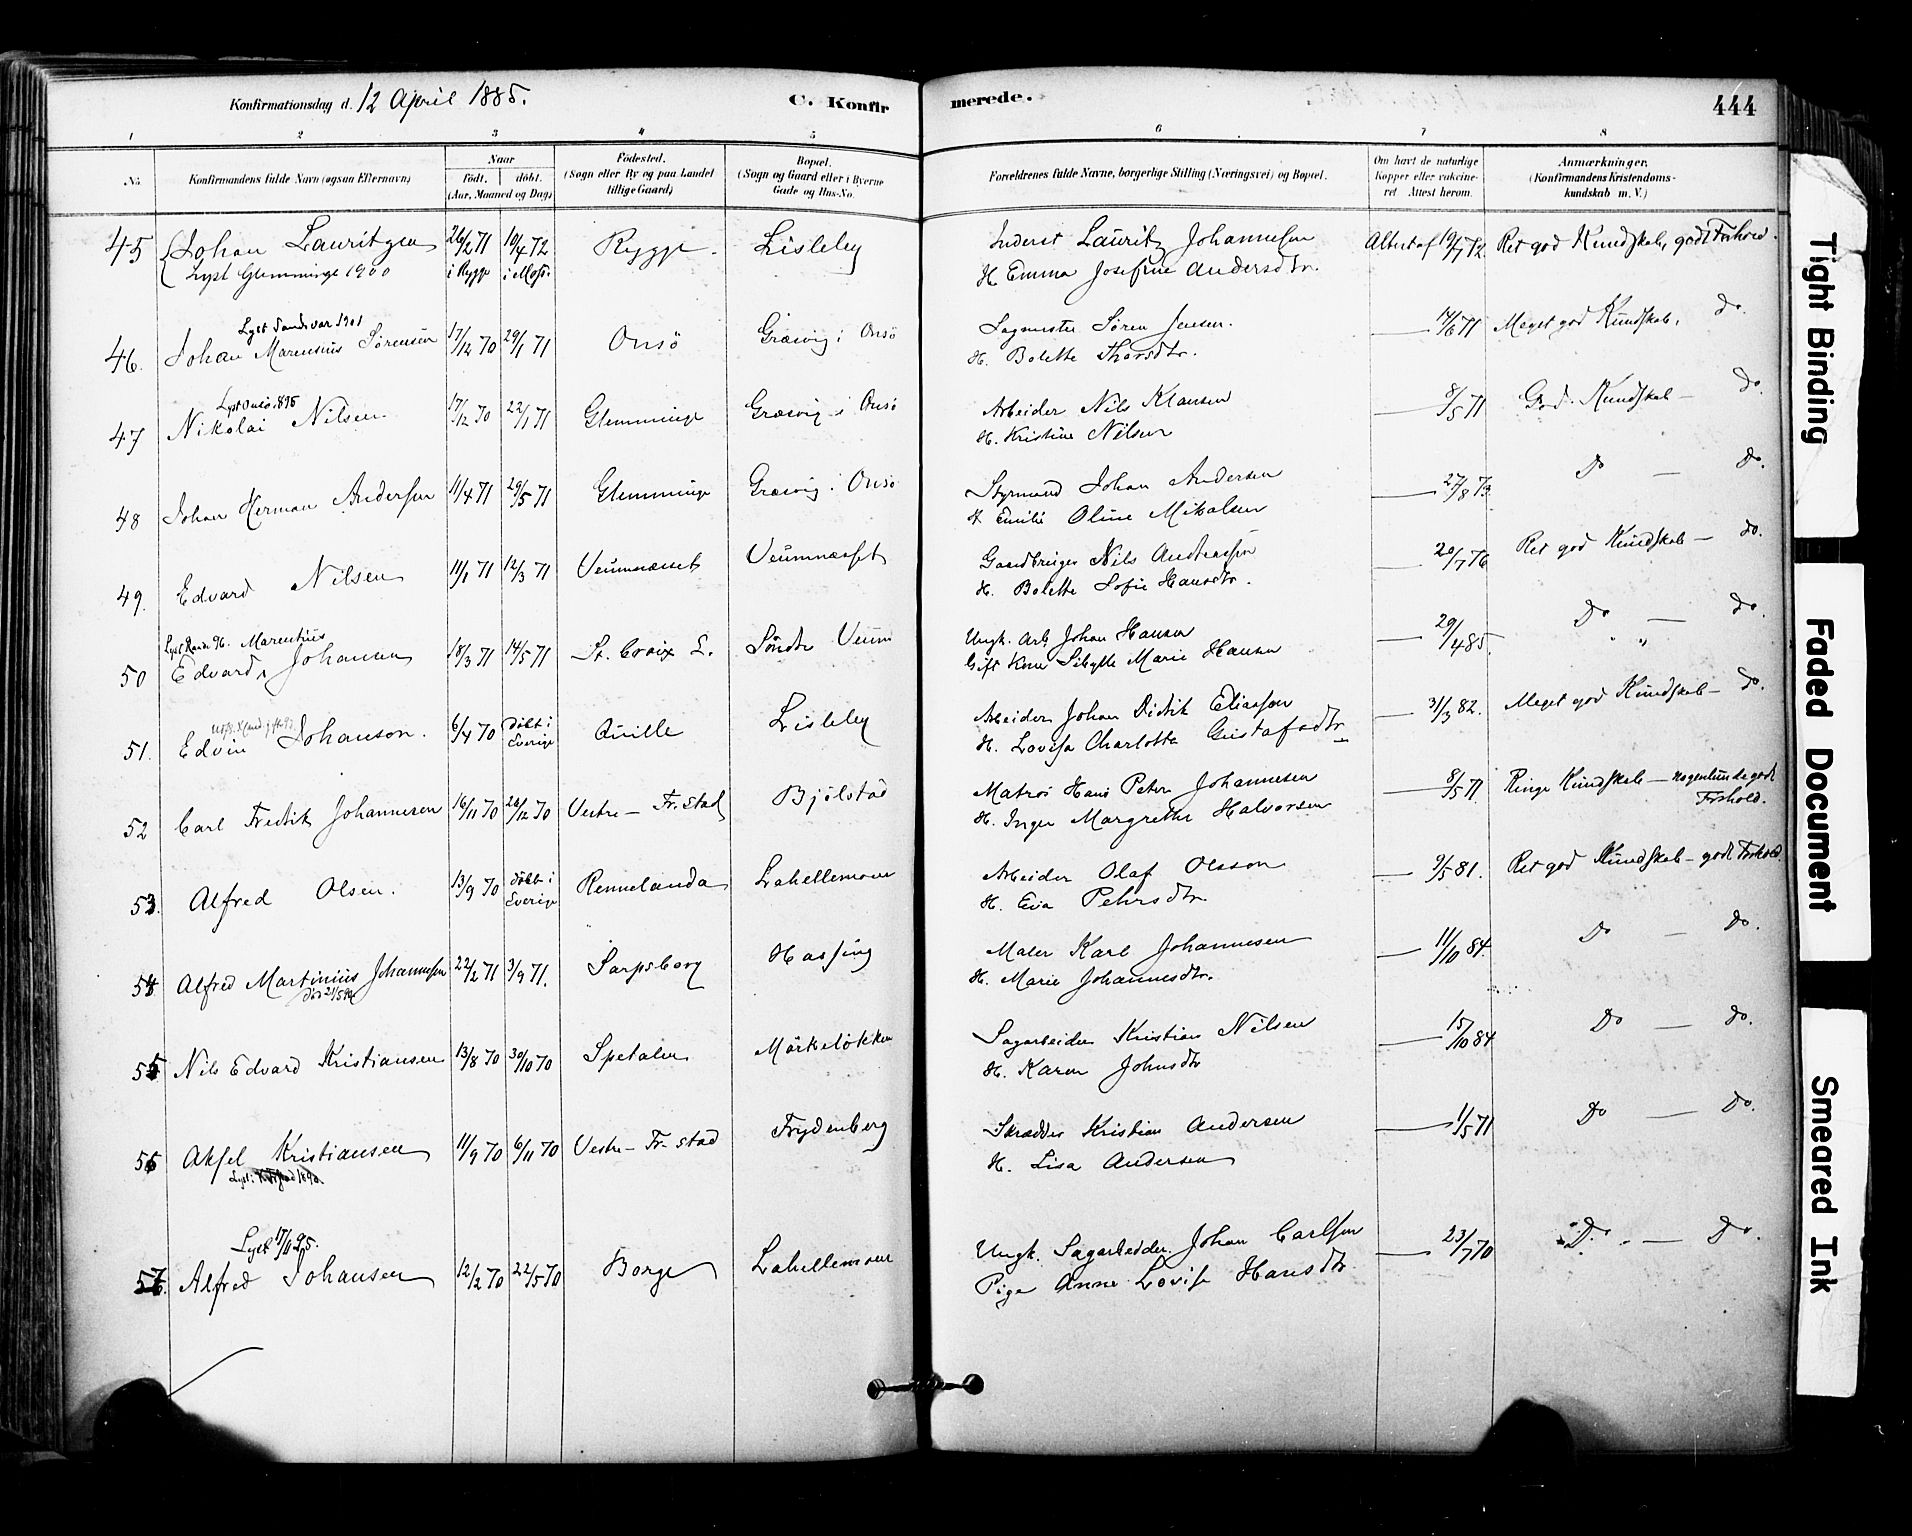 Konfirmationsdag d. 12 April 1885.
C. Konfirmerede.
444
1 2 3 4 5 6 7 8
No.
Konfirmandens fulde Navn (ogsaa Efternavn)
Naar
Født. døbt.
(Aar, Maaned og Dag)
Fødested.
(Sogn eller By og paa Landet
tillige Gaard)
Bopæl.
(Sogn og Gaard eller i Byerne
Gade og Hus-No.
Forældrenes fulde Navne, borgerlige Stilling (Næringsvei) og Bopæl.
Om havt de naturlige
Kopper eller vakcine-
ret Attest herom.
Anmærkninger.
(Konfirmandens Kristendoms-
kundskab m. V.)
45 Johan Lauritzen 26/2 71 10/4 72 Rygge Lisleby Inderst Lauritz Johannesen Attest af 19/7 72. Ret god Kundskab, godt Forhold.
Lyst Glemminge 1900 i Rygge i Moss. H. Emma Josefine Andersdtr.
Lyst Sandsvær 1901
46. Johan Marensius Sørensen 17/12 70 29/1 71 Onsö Græsvig i Onsö Sagmester Søren Jensen. — 14/6 71 Meget god Kundskab, do.
H. Bolette Thorsdtr.
Lyst Onsö 1895
47 Nikolai Nilsen 17/12 70 22/1 71 Glemminge Græsvig i Onsö Arbeider Nils Klausen — 8/5 71 God Kundskab — do.
H. Kristine Nilsen
48 Johan Herman Andersen 11/4 71 29/5 71 Glemminge Græsvig i Onsö Styrmand Johan Andersen — 27/8 73. Do — do.
H. Emilie Oline Mikalsen
49. Edvard Nilsen 11/1 71 12/3 71 Veumnæsset Veumnæsset Gaardbruger Nils Andreassen — 20/7 76 Ret god Kundskab — do.
H. Bolette Sofie Hansdtr.
Marentius
50 Edvard Johansen 18/3 71 14/5 71 St. Croix L. Söndre Veum Ungk. Arb. Johan Hansen — 29/4 85. Do — do.
Gift Kone Sibylle Marie Hansen
51. Edvin Johanson. 6/4 70 Döbt i Sverige Quille Lisleby Arbeider Johan Didrik Eliasson — 31/3 82. Meget god Kundskab — do.
H. Lovisa Charlotta Gustafsdtr
52 Carl Fredrik Johannesen 16/11 70 26/12 70 Vestre - Fr.stad Bjölstad Matros Hans Peter Johannesen — 8/5 71 Ringe Kundskab — nogenlunde godt
H. Inger Margrethe Halvorsen Forhold.
53. Alfred Olsen. 13/9 70 döbt i Sverige Rennelanda Lahellemoen Arbeider Olaf Olsson — 9/5 81. Ret god Kundskab — godt Forhold.
H. Eva Pehrsdtr.
54 Alfred Martinius Johannesen 22/2 71 3/9 71. Sarpsborg Hassing Maler Karl Johannesen — 11/10 84. Do — do.
H. Marie Johannesdtr.
55 Nils Edvard Kristiansen 13/8 70 30/10 70 Spetalen Mörkelökken Sagarbeider Kristian Nilsen — 15/10 84 Do — do.
H. Karen Johnsdtr
56 Aksel Kristiansen 11/9 70 6/11 70 Vestre - Fr.stad Frydenberg Skrædder Kristian Andersen — 1/5 71 Do — Do.
H. Lisa Andersen
57. Alfred Johansen 12/2 70 22/5 70 Borge Lahellemoen Ungk. Sagarbeider Johan Carlsen — 23/7 70 Do. — Do.
Pige Anne Lovise Hansdtr
Tight Binding
Faded Document
Smeared Ink